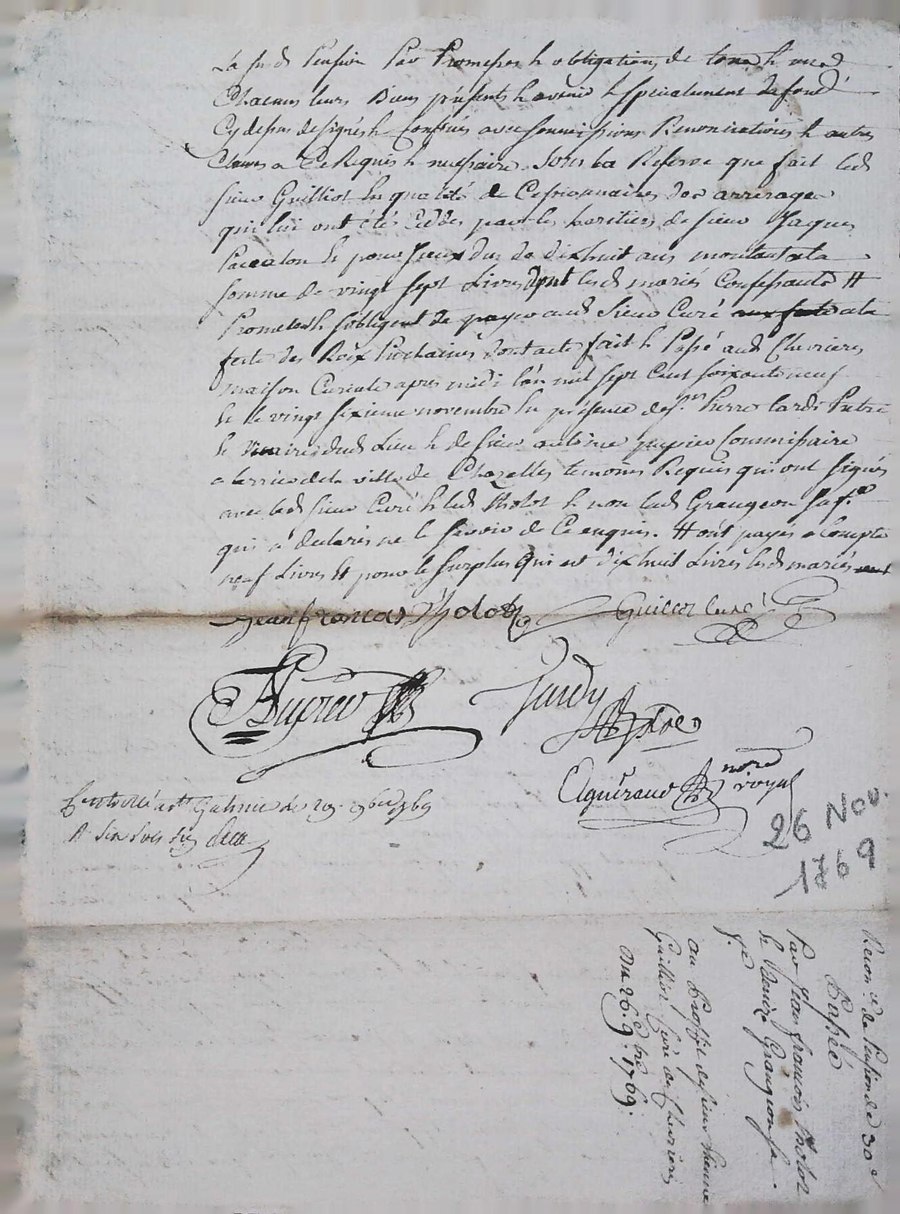 La ssn de Pension Par Promesses & obligations de tous & un ch
Chacuns leurs Biens présents & avenir & spécialement des fonds
Cy dessus désignés & Confinés avec soumissions Renonciations & autres
Clauses a Ce Requis & nécessaire. Sous la Réserve que fait led
sieur Guilliot En qualité de Cessionnaires des arrérages
qui lui ont étés cédés par les héritiers de sieur Jaques
Pacalon & pour Iceux dus de dixhuit ans montant a la
somme de vingt sept Livres dont lesd mariés Confessants #
Promettent & s'obligent de payer aud sieur Curé a la
feste des Roix Prochaines dont acte fait & Passé aud Chevrières
maison Curiale après midi l'an mil sept Cent soixante neuf
& le vingt sixieme novembre En présence de sr. Pierre Lardi Prêtre
& Vicaire dud Lieu & de sieur antoine pupier Commissaire
a terrier de la ville de Chazelles temoins Requis qui ont signés
avec led sieur Curé & led Tholot & non lad Grangeon sa fe
qui a declarés ne le savoir de Ce enquis. # ont payés a Compte
neuf Livres Et pour le surplus qui est dixhuit Livres lesd mariés
Jean francois Tholot Guilliot Curé
APupier Jardy
ptre
Aguiraud nore
royal
Controllé a st Galmier le 29. 9bre 1769
R six sols six den
26 Nov.
1769
Reconce de Pension de 30 s
Passée
Par Jean francois Tholot
& Benoite Grangeon sa
fe
au Proffit de sieur Etienne
Guilliot Curé de Chevrieres
Du 26. 9bre 1769.